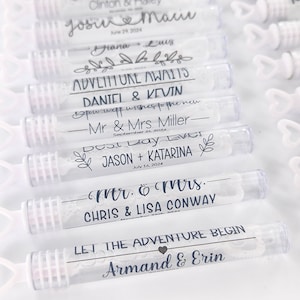 Clinton & Hailey
Josie & Marie
June 29, 2024
Diana Luis
ADVENTURE AWAITS
DANIEL & KEVIN
Mr & Mrs Miller
Best Day Ever
JASON + KATARINA
Mr. & Mrs.
CHRIS & LISA CONWAY
LET THE ADVENTURE BEGIN
Armand & Erin